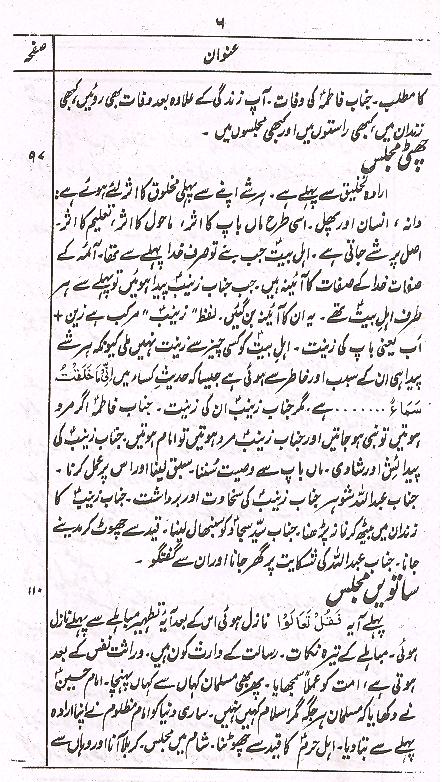 ۶
عنوان صفحہ
کا مطلب ۔ جناب فاطمہؑ کی وفات ۔ آپ زندگی کے علاوہ بعد وفات بھی روئیں، کبھی
زندان میں، کبھی راستوں میں اور کبھی مجلسوں میں ۔
چھٹی مجلس ۹۷
ارادہ تخلیق سے پہلے ہے ۔ ہر شے اپنے سے پہلی مخلوق کا اثر لئے ہوئے ہے:
دانہ، انسان اور پھل ۔ اسی طرح ماں باپ کا اثر، ماحول کا اثر، تعلیم کا اثر ۔
اصل پر شے جاتی ہے ۔ اہل بیتؑ جب بنے تو صرف خدا پہلے سے تھا ۔ آئمہ کے
صفات خدا کے صفات کا آئینہ ہیں ۔ جب جناب زینبؑ پیدا ہوئیں تو پہلے سے ہر
طرف اہل بیتؑ تھے ۔ یہ ان کا آئینہ بن گئیں ۔ لفظ "زینب" مرکب ہے زین +
اَب یعنی باپ کی زینت ۔ اہل بیتؑ کو کسی چیز سے زینت نہیں ملی کیونکہ ہر شے
پیدا ہی ان کے سبب اور خاطر سے ہوئی ہے جیسا کہ حدیثِ کساء میں اِنِّی مَا خَلَقْتُ
سَمَاءً ........ ہے، مگر جناب زینبؑ ان کی زینت ۔ جناب فاطمہؑ اگر مرد
ہوتیں تو نبی ہو جاتیں اور جناب زینبؑ مرد ہوتیں تو امام ہوتیں ۔ جناب زینبؑ کی
پیدائش اور شادی ۔ ماں باپ سے وصیت سننا ۔ سبق لینا اور اس پر عمل کرنا ۔
جناب عبداللہ شوہر جناب زینبؑ کی سخاوت اور برداشت ۔ جناب زینبؑ کا
زندان میں بیٹھ کر نماز پڑھنا ۔ جناب سیّد سجادؑ کو سنبھال لینا ۔ قید سے چھوٹ کر مدینے
جانا ۔ جناب عبداللہ کی شکایت پر گھر جانا اور ان سے گفتگو ۔
ساتویں مجلس ۱۱۰
پہلے آیہ فَقُلْ تَعَالَوْا نازل ہوئی اس کے بعد آیۂ تطہیر مباہلے سے پہلے نازل
ہوئی ۔ مباہلے کے تیرہ نکات ۔ رسالت کے وارث کون ہیں ۔ وراثت نفس کے بعد
ہوتی ہے، امت کو عملاً سمجھایا ۔ پھر بھی مسلمان کہاں سے کہاں پہنچا ۔ امام حسینؑ
نے دکھایا کہ مسلمان ہے جبکہ مگر اسلام نہیں نہیں ۔ ساری دنیا کو امام مظلوم نے اپنا ارادہ
پہلے سے بتا دیا ۔ اہل حرمؑ کا قید سے چھوٹنا ۔ شام میں مجلس ۔ کربلا آنا اور وہاں سے